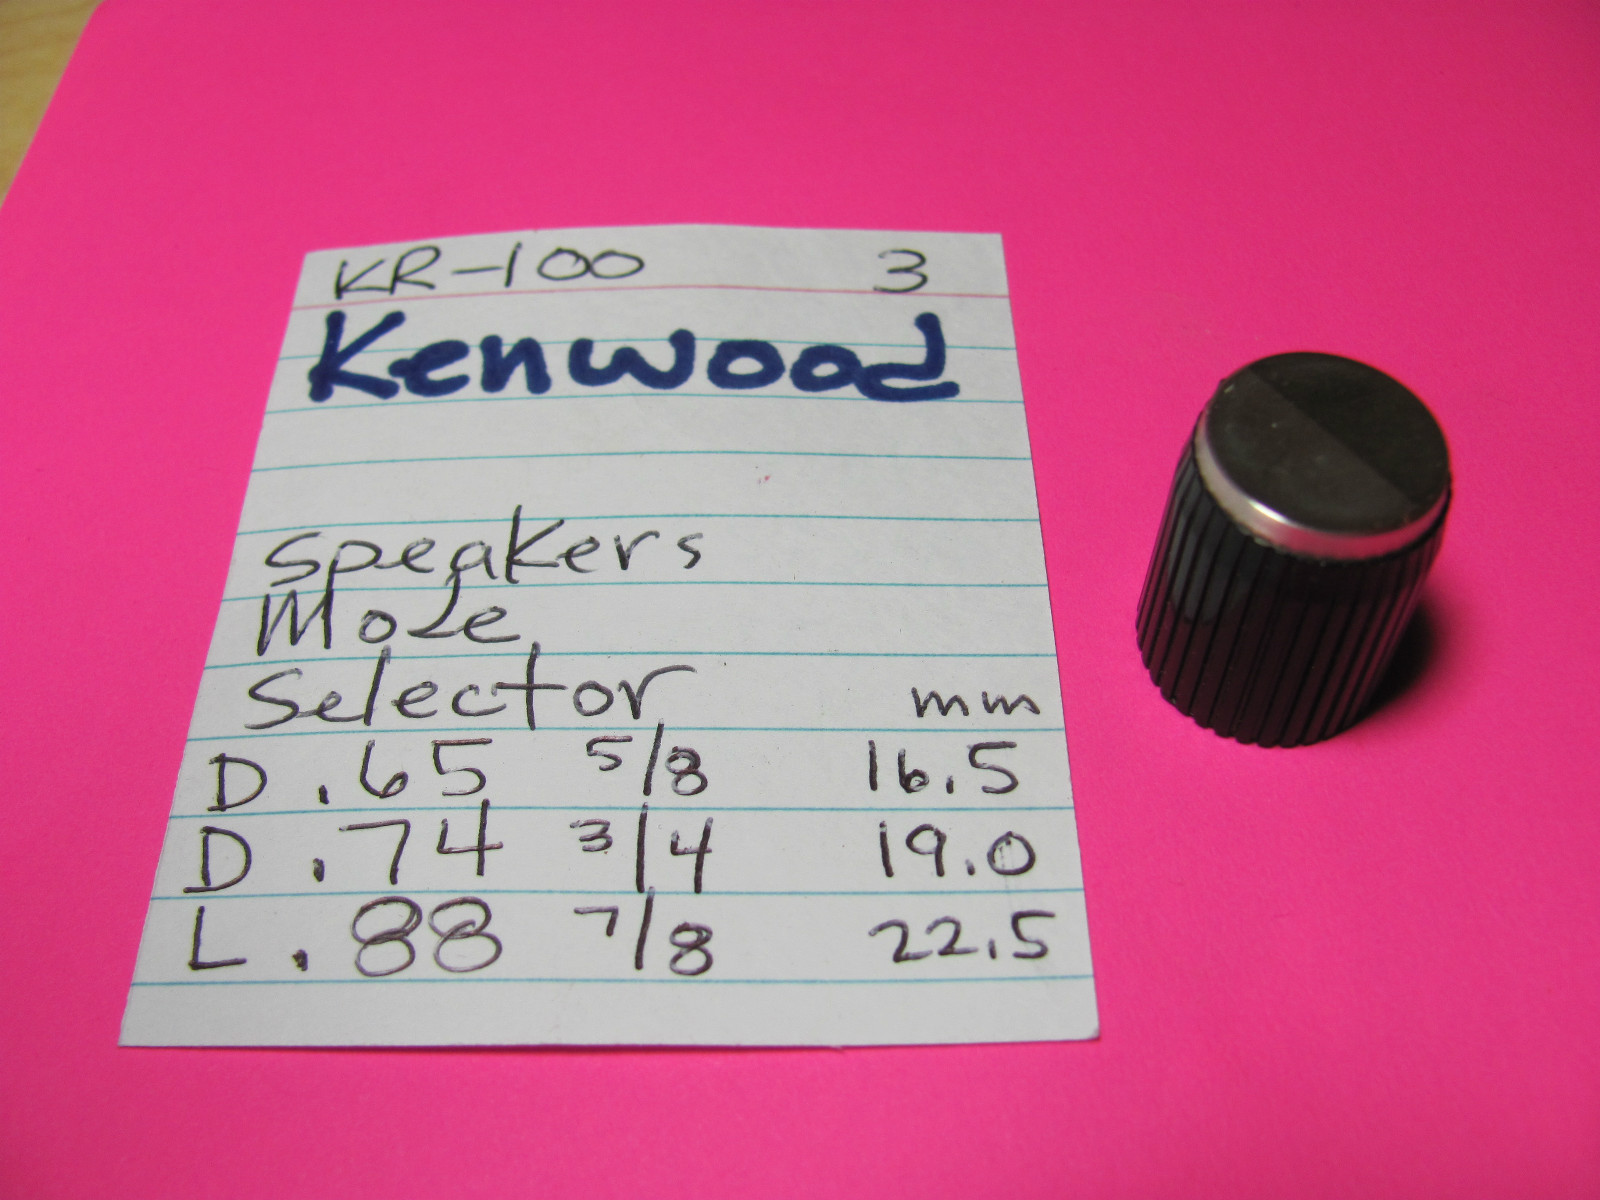 KR-100 3
Kenwood
Speakers
Mode
Selector mm
D .65 5/8 16.5
D .74 3/4 19.0
L .88 7/8 22.5